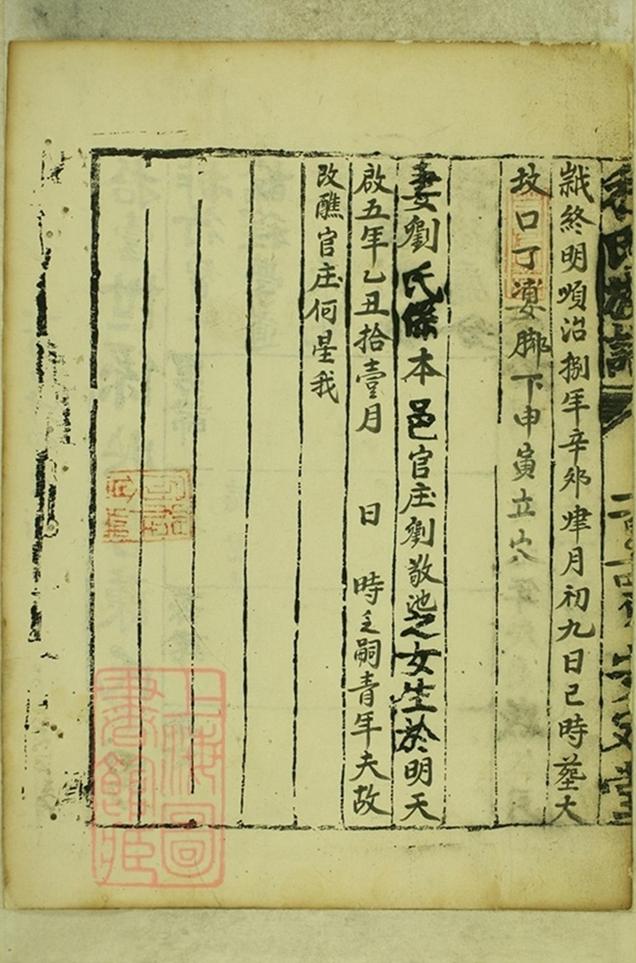 氏族譜
㦰終明順治捌年辛夘肆月初九日巳時塟大
坟口丁宴脚下申寅立穴
妻劉氏係本邑官庄劉敬池之女生於明天
啟五年乙丑拾壹月 日 時乏嗣青年夫故
改醮官庄何星我
上海圖書館藏